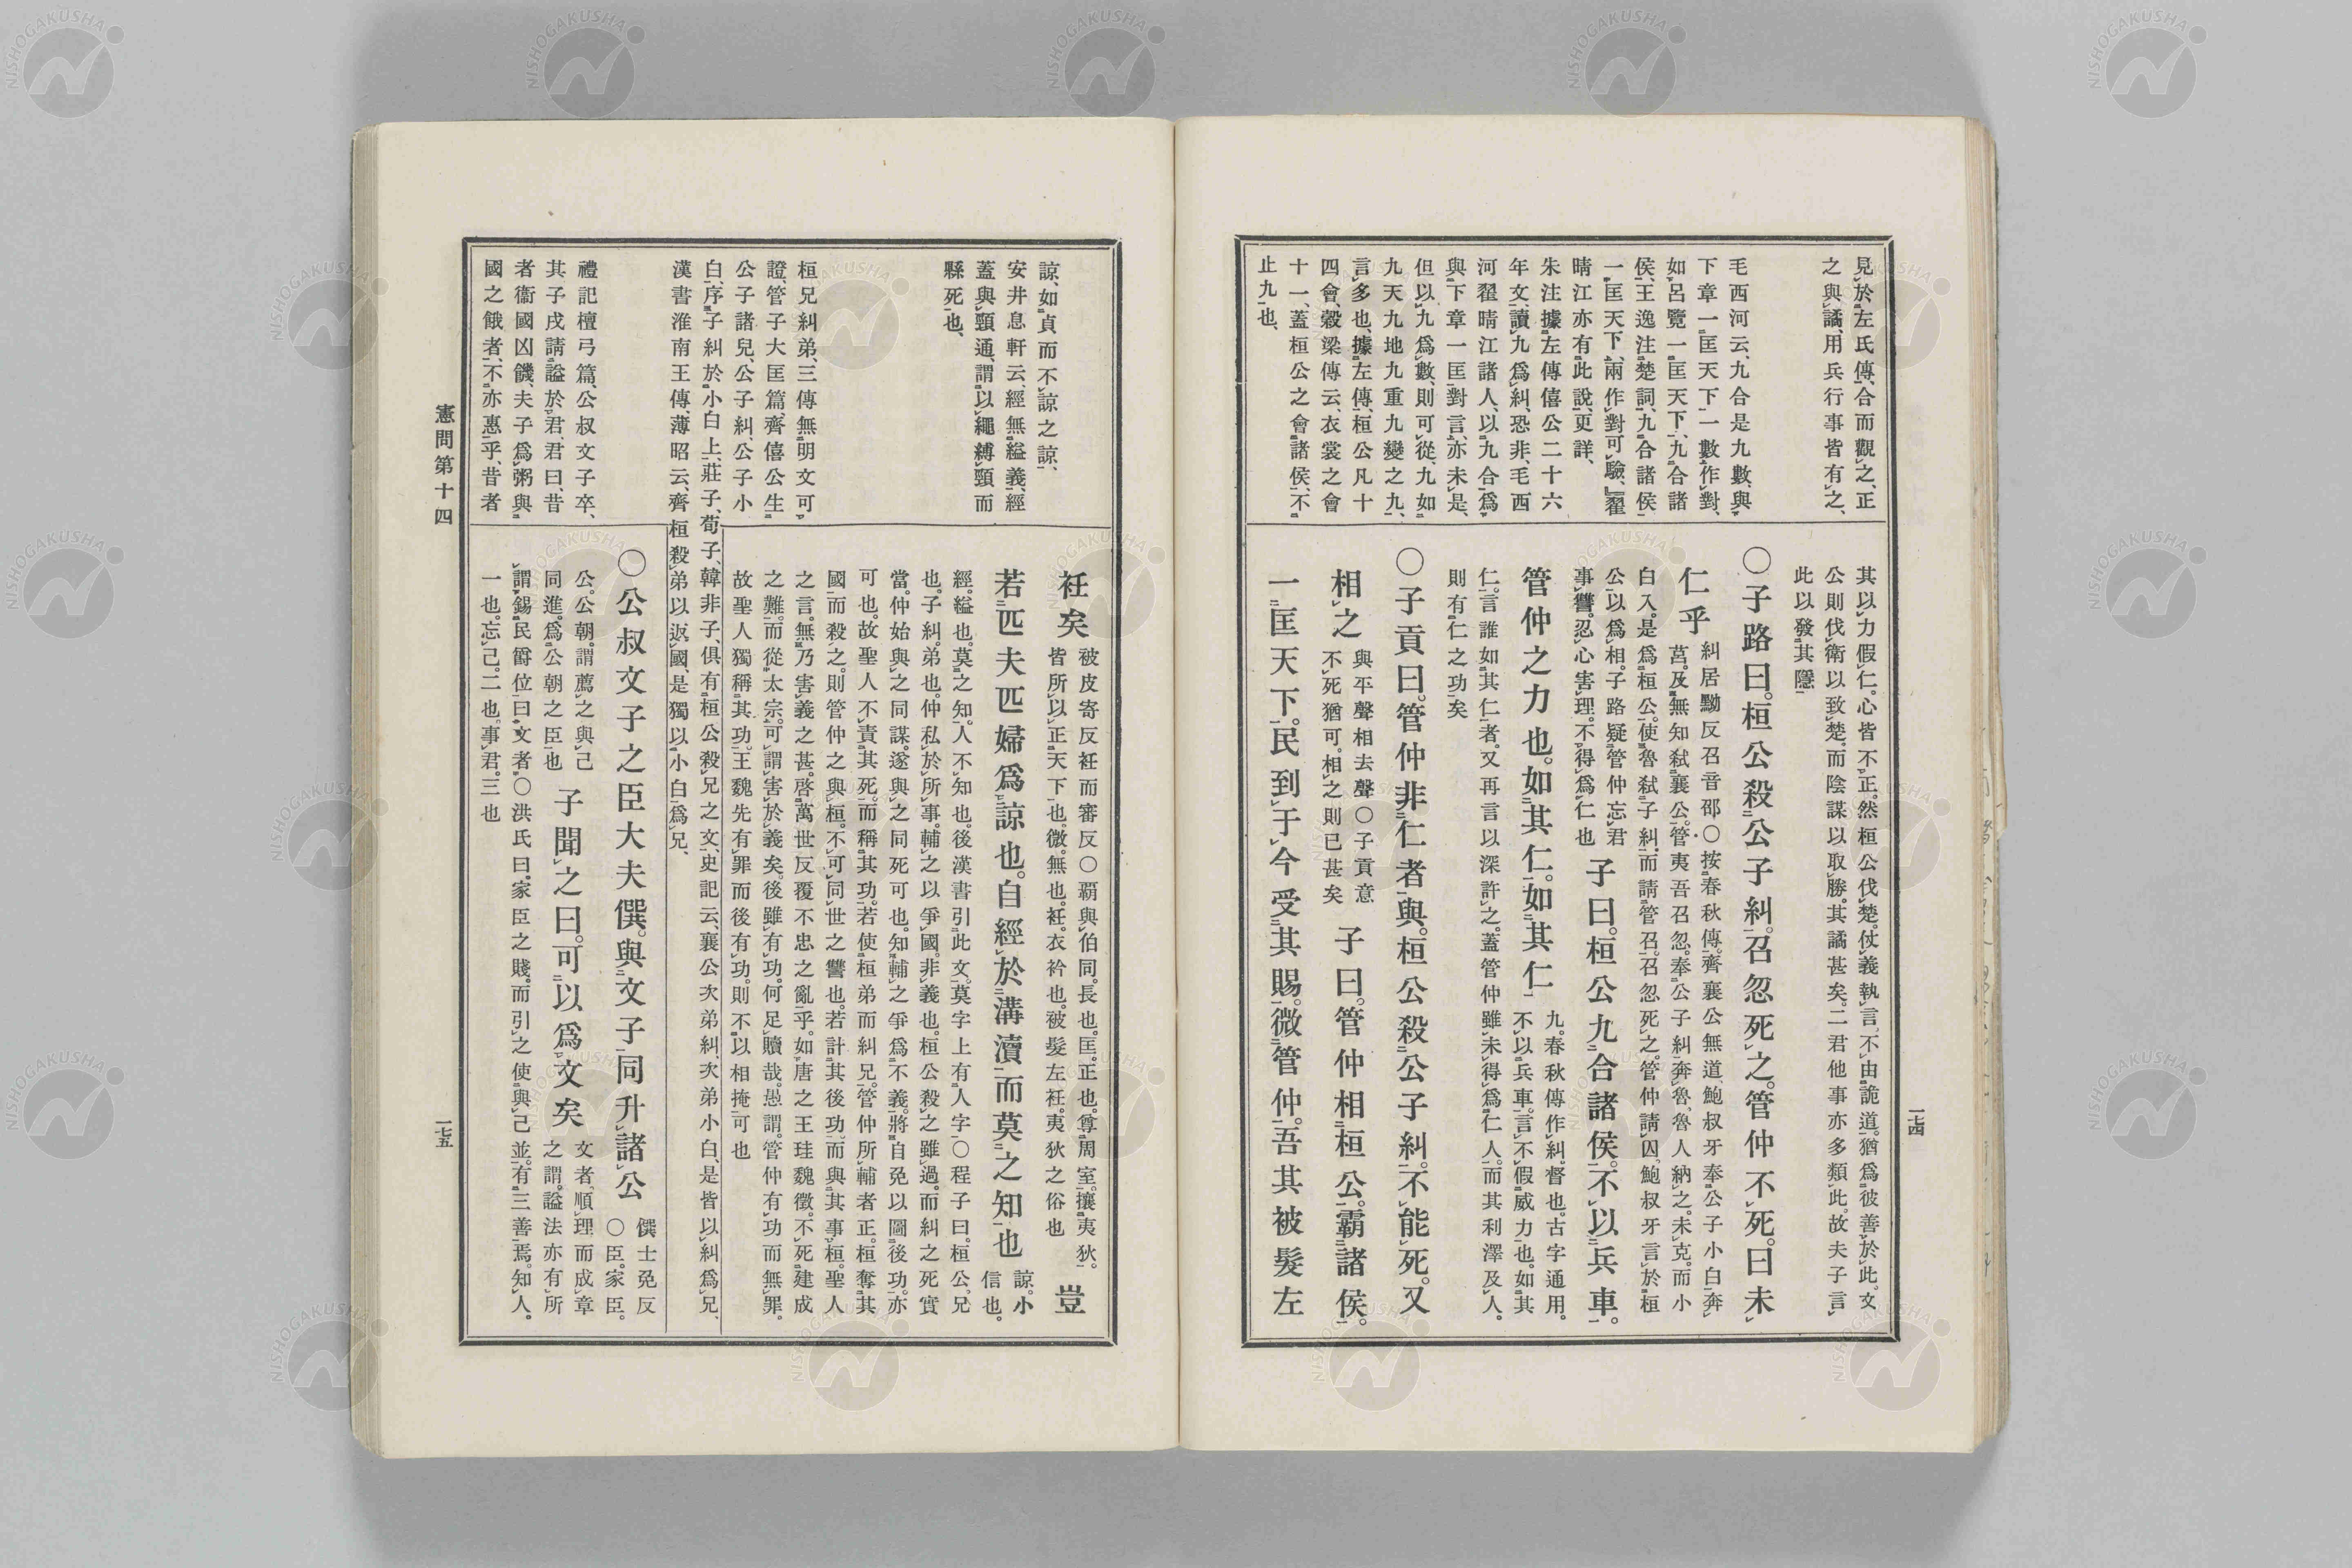 見於左氏傳、合而觀之、正
之與譎、用兵行事皆有之、
毛西河云、九合是九數、與
下章一匡天下一數作對、
如呂覽一匡天下、九合諸
侯、王逸注楚詞、九合諸侯
一匡天下、兩作對可驗、翟
晴江亦有此說、更詳、
朱注據左傳僖公二十六
年文、讀九爲糾、恐非、毛西
河翟晴江諸人、以九合爲
與下章一匡對言、亦未是、
但以九爲數、則可從、九如
九天九地九重九變之九、
言多也、據左傳、桓公凡十
四會、穀梁傳云、衣裳之會
十一、蓋桓公之會諸侯、不
止九也、
其以力假仁。心皆不正。然桓公伐楚。仗義執言、不由詭道。猶爲彼善於此。文
公則伐衛以致楚。而陰謀以取勝。其譎甚矣。二君他事亦多類此。故夫子言
此以發其隱
〇子路曰。桓公殺公子糾。召忽死之。管仲不死。曰未
仁乎
糾居黝反召音邵〇按春秋傳。齊襄公無道、鮑叔牙奉公子小白奔
莒。及無知弒襄公。管夷吾召忽。奉公子糾奔魯、魯人納之。未克。而小
白入。是爲桓公。使魯弒子糾。而請管召。召忽死之。管仲請囚、鮑叔牙言於桓
公以爲相。子路疑管仲忘君
事讐。忍心害理。不得爲仁也
子曰。桓公九合諸侯。不以兵車。
管仲之力也。如其仁。如其仁
九。春秋傳作糾。督也。古字通用。
不以兵車。言不假威力也。如其
仁。言誰如其仁者。又再言以深許之。蓋管仲雖未得爲仁人。而其利澤及人。
則有仁之功矣
〇子貢曰。管仲非仁者與。桓公殺公子糾。不能死。又
相之
與平聲相去聲〇子貢意
不死猶可。相之則已甚矣
子曰。管仲相桓公。霸諸侯。
一匡天下。民到于今受其賜。微管仲。吾其被髮左
一七四
諒、如貞而不諒之諒、
安井息軒云、經無縊義、經
蓋與頸通、謂以繩縛頸而
縣死也、
桓兄糾弟、三傳無明文可
證、管子大匡篇、齊僖公生
公子諸兒、公子糾、公子小
白、序子糾於小白上、莊子、荀子、韓非子、俱有桓公殺兄之文、史記云、襄公次弟糾、次弟小白、是皆以糾爲兄、
漢書淮南王傳、薄昭云、齊桓殺弟以返國、是獨以小白爲兄、
禮記檀弓篇、公叔文子卒、
其子戍請諡於君、君曰、昔
者衞國凶饑、夫子爲粥與
國之餓者、不亦惠乎、昔者
衽矣
被皮寄反衽而審反〇霸與伯同。長也。匡。正也。尊周室。攘夷狄。
皆所以正天下也。微。無也。衽。衣衿也。被髮左衽。夷狄之俗也
豈
若匹夫匹婦爲諒也。自經於溝瀆而莫之知也
諒。小
信也。
經。縊也。莫之知。人不知也。後漢書引此文。莫字上有人字〇程子曰。桓公。兄
也。子糾。弟也。仲私於所事。輔之以爭國。非義也。桓公殺之雖過。而糾之死實
當。仲始與之同謀。遂與之同死可也。知輔之爭爲不義。將自免以圖後功。亦
可也。故聖人不責其死。而稱其功。若使桓弟而糾兄。管仲所輔者正。桓奪其
國而殺之。則管仲之與桓。不可同世之讐也。若計其後功。而與其事桓。聖人
之言。無乃害義之甚。啓萬世反覆不忠之亂乎。如唐之王珪魏徵。不死建成
之難。而從太宗。可謂害於義矣。後雖有功。何足贖哉。愚謂。管仲有功而無罪。
故聖人獨稱其功。王魏先有罪而後有功。則不以相掩可也
〇公叔文子之臣大夫僎。與文子同升諸公
僎士免反
〇臣。家臣。
公。公朝。謂薦之與己
同進。爲公朝之臣也
子聞之曰。可以爲文矣
文者、順理而成章
之謂。諡法亦有所
謂錫民爵位曰文者〇洪氏曰。家臣之賤。而引之使與己並。有三善焉。知人。
一也。忘己。二也。事君。三也
憲問第十四
一七五
NISHOGAKUSHA